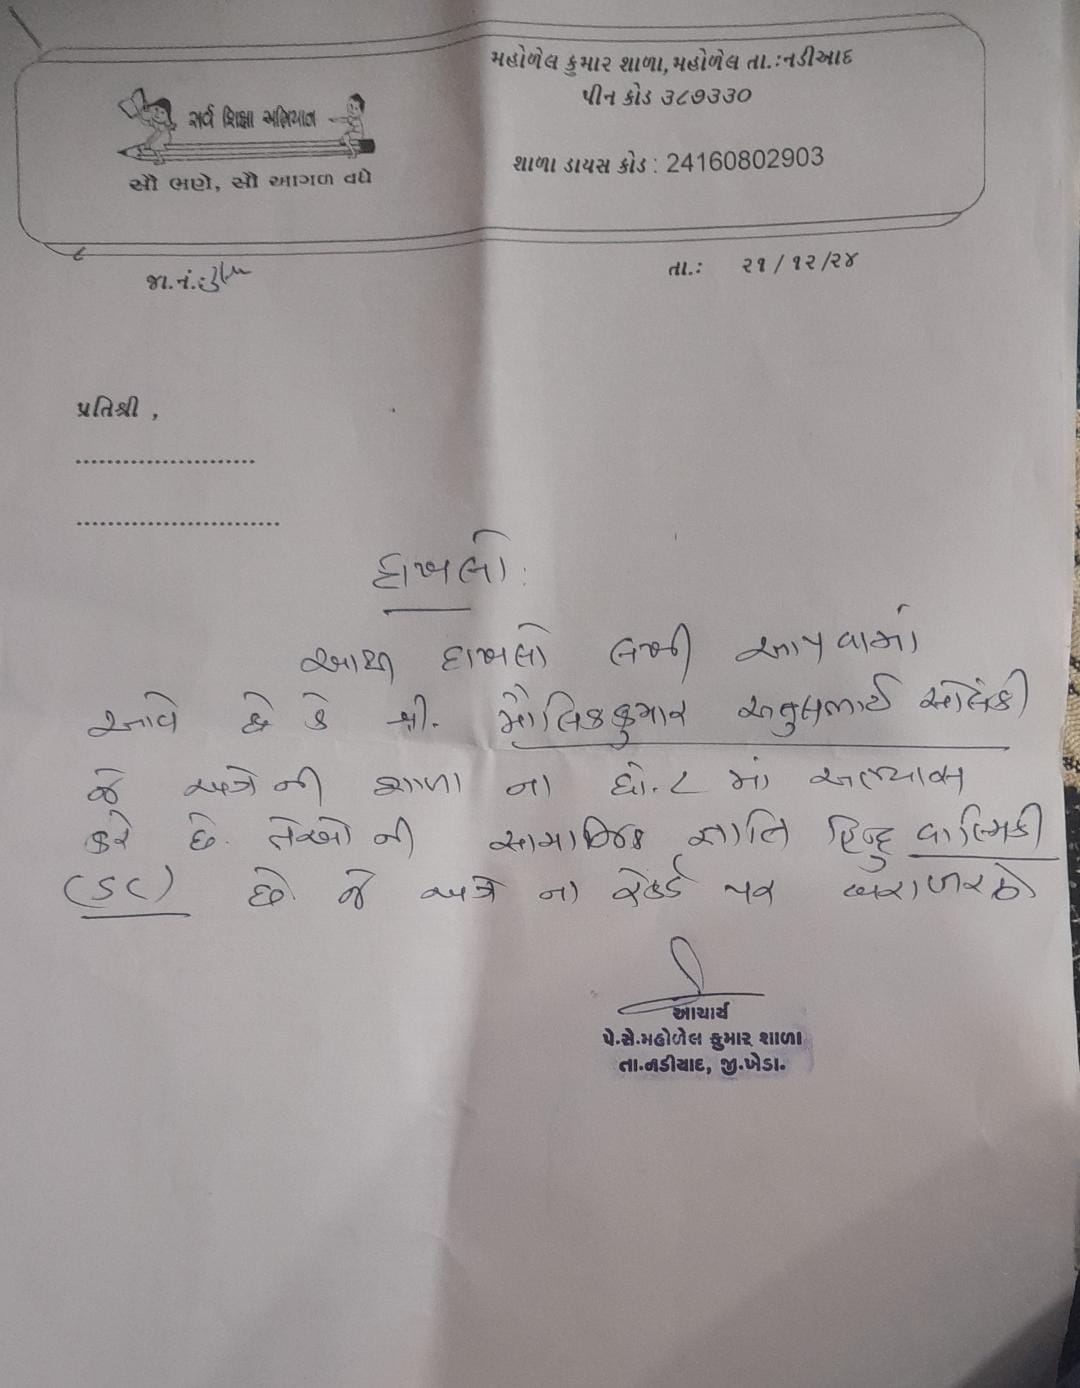 મહોળેલ કુમાર શાળા, મહોળેલ તા.:નડીઆદ
પીન કોડ ૩૮૭૩૩૦
સર્વ શિક્ષા અભિયાન
સૌ ભણે, સૌ આગળ વધે
શાળા ડાયસ કોડ : 24160802903
જા.નં.:
તા.: ૨૧/૧૨/૨૪
પ્રતિશ્રી ,
દાખલો:
આથી દાખલો લખી આપવામાં
આવે છે કે શ્રી. મૌલિકકુમાર અતુલભાઈ સોલંકી
જે અત્રેની શાળા ના ધો.૮ માં અભ્યાસ
કરે છે. તેઓ ની સામાજિક જ્ઞાતિ હિન્દુ વાલ્મિકી
(SC) છે. જે અત્રે ના રેકર્ડ પર બરાબર છે
આચાર્ય
પે.સે.મહોળેલ કુમાર શાળા
તા.નડીયાદ, જી.ખેડા.